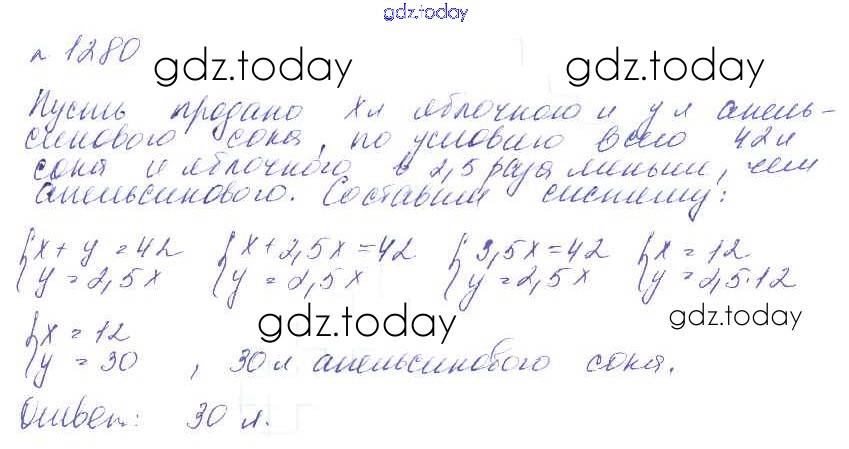 gdz.today
№ 1280
gdz.today gdz.today
Пусть продано x л яблочного и y л апель-
синового сока, по условию всего 42 л
сока и яблочного в 2,5 раза меньше, чем
апельсинового. Составим систему:
{x + y = 42 {x + 2,5x = 42 {3,5x = 42 {x = 12
{y = 2,5x {y = 2,5x {y = 2,5x {y = 2,5·12
gdz.today gdz.today
{x = 12
{y = 30 , 30 л апельсинового сока.
Ответ: 30 л.